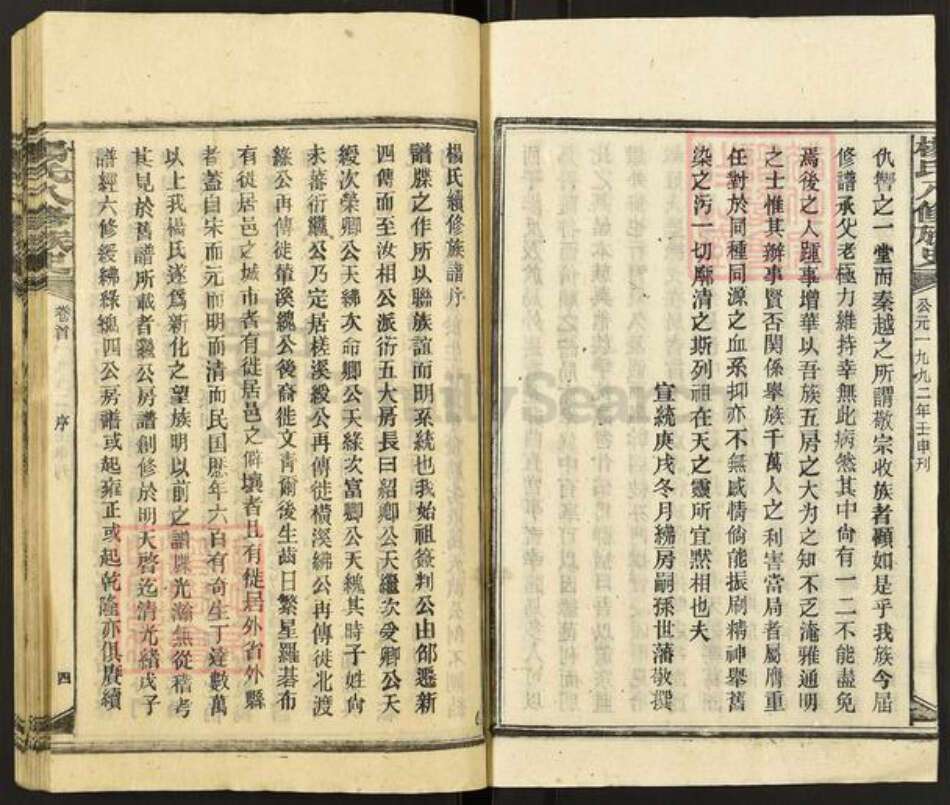 楊氏八修族史
公元一九九二年壬申刊
仇響之一堂而秦越之所謂敬宗收族者顧如是乎我族今屆
修譜承父老極力維持幸無此病然其中尙有一二不能盡免
焉後之人踵事增華以吾族五房之大为之知不乏淹雅通明
之士惟其辦事賢否関係舉族千萬人之利害當局者屬膺重
任對於同種同源之血系抑亦不無感情倘能振刷精神舉舊
染之汚一切廓清之斯列祖在天之靈所宜默相也夫
宣統庚戌冬月綈房嗣孫世藩敬撰
楊氏續修族譜序
譜牒之作所以聯族誼而明系統也我始祖簽判公由邵遷新
四傳而至汝相公派衍五大房長曰紹卿公天繼次爱卿公天
綬次荣卿公天綈次命卿公天緣次富卿公天纔其時子姓尙
未蕃衍繼公乃定居槎溪綬公再傳徙橫溪綈公再傳徙北渡
緣公再傳徙 溪纔公後裔徙文靑爾後生齒日繁星羅碁布
有徙居邑之城市者有徙居邑之僻壤者且有徙居外省外縣
者蓋自宋而元而明而清而民国歷年六百有奇生丁達數萬
以上我楊氏遂爲新化之望族明以前之譜牒光瀚無從稽考
其見於舊譜所載者繼公房譜創修於明天啓迄清光緖戌子
譜經六修綬綈緣纔四公房譜或起雍正或起乾隆亦俱賡續
楊氏八修族史
卷首
序
四
FamilySearch